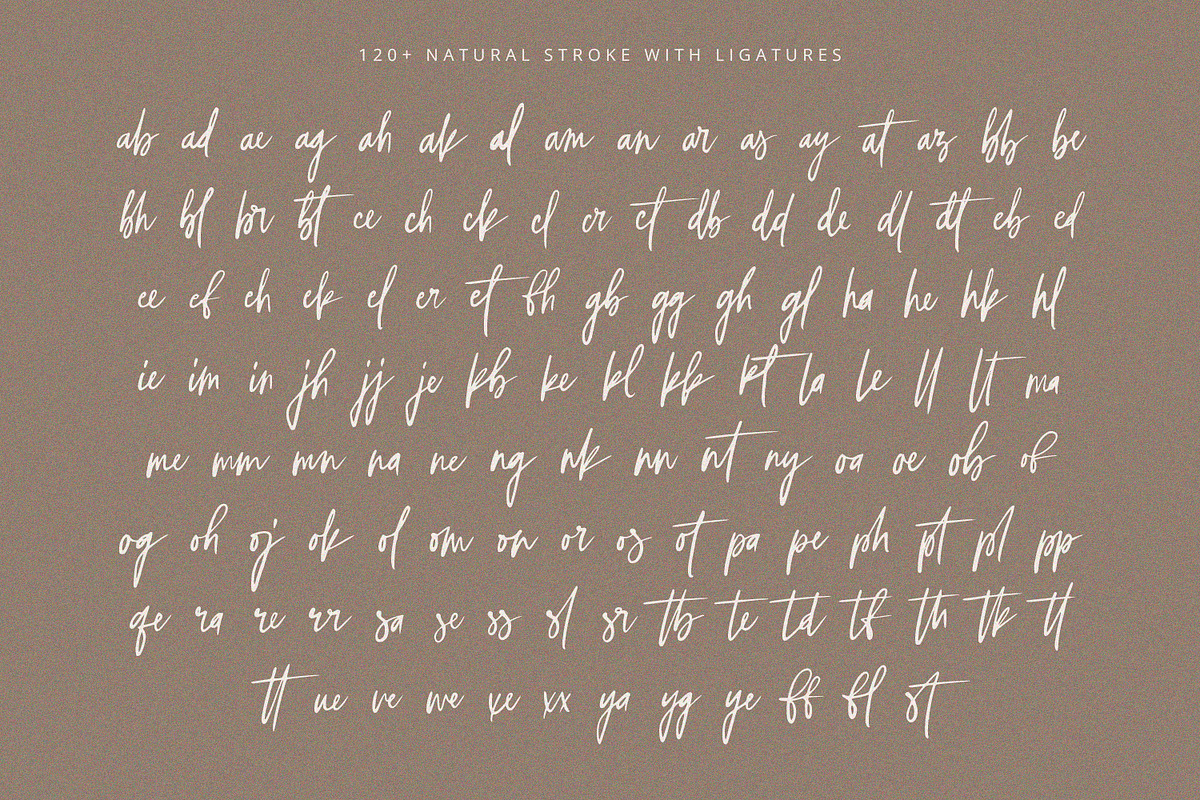 120+ NATURAL STROKE WITH LIGATURES
ab ad ae ag ah ak al am an ar as ay at az bb be
bh bl br bt ce ch ck cl cr ct db dd de dl dt eb ed
ee ef eh ek el er et fh gb gg gh gl ha he hk hl
ie im in jh jj je kb ke kl kk kt la le ll lt ma
me mm mn na ne ng nk nn nt ny oa oe ob of
og oh oj ok ol om on or os ot pa pe ph pt pl pp
qe ra re rr sa se ss sl sr tb te td tf th tk tl
tt ue ve we xe xx ya yg ye ff fl st